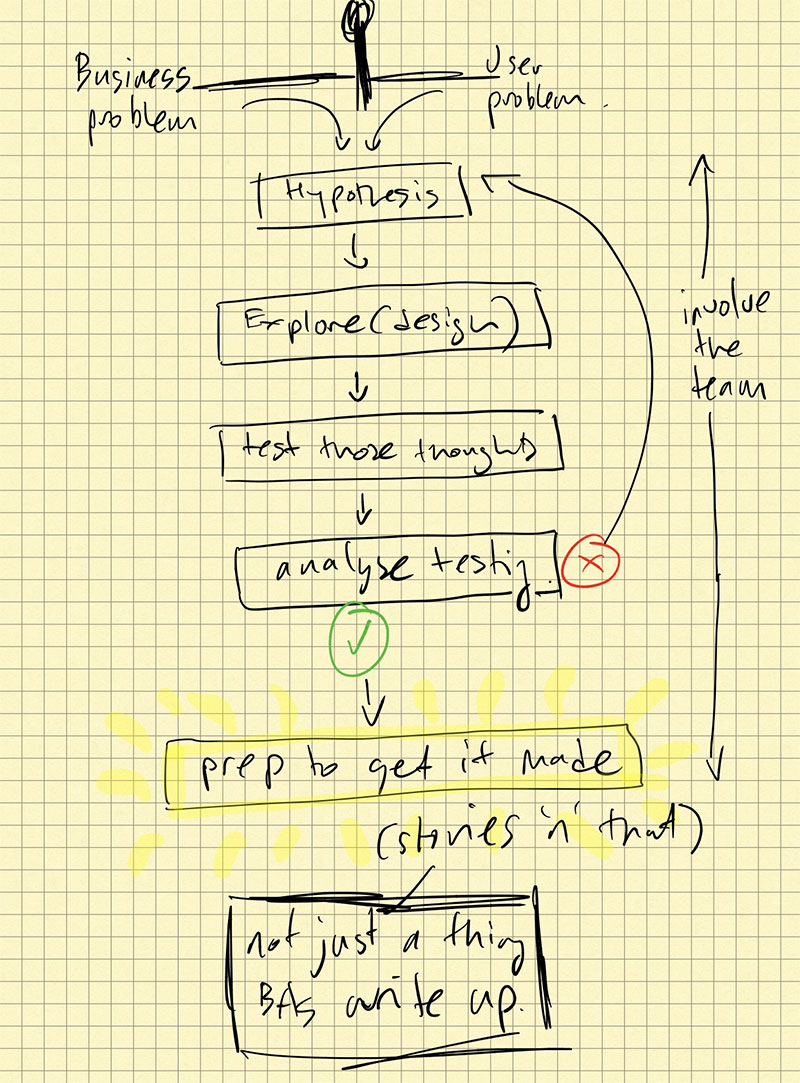 Business
problem
User
problem.
Hypothesis
Explore (design)
test those thoughts
analyse testing.
involve
the
team
prep to get it made
(stories 'n' that)
not just a thing
BAs write up.